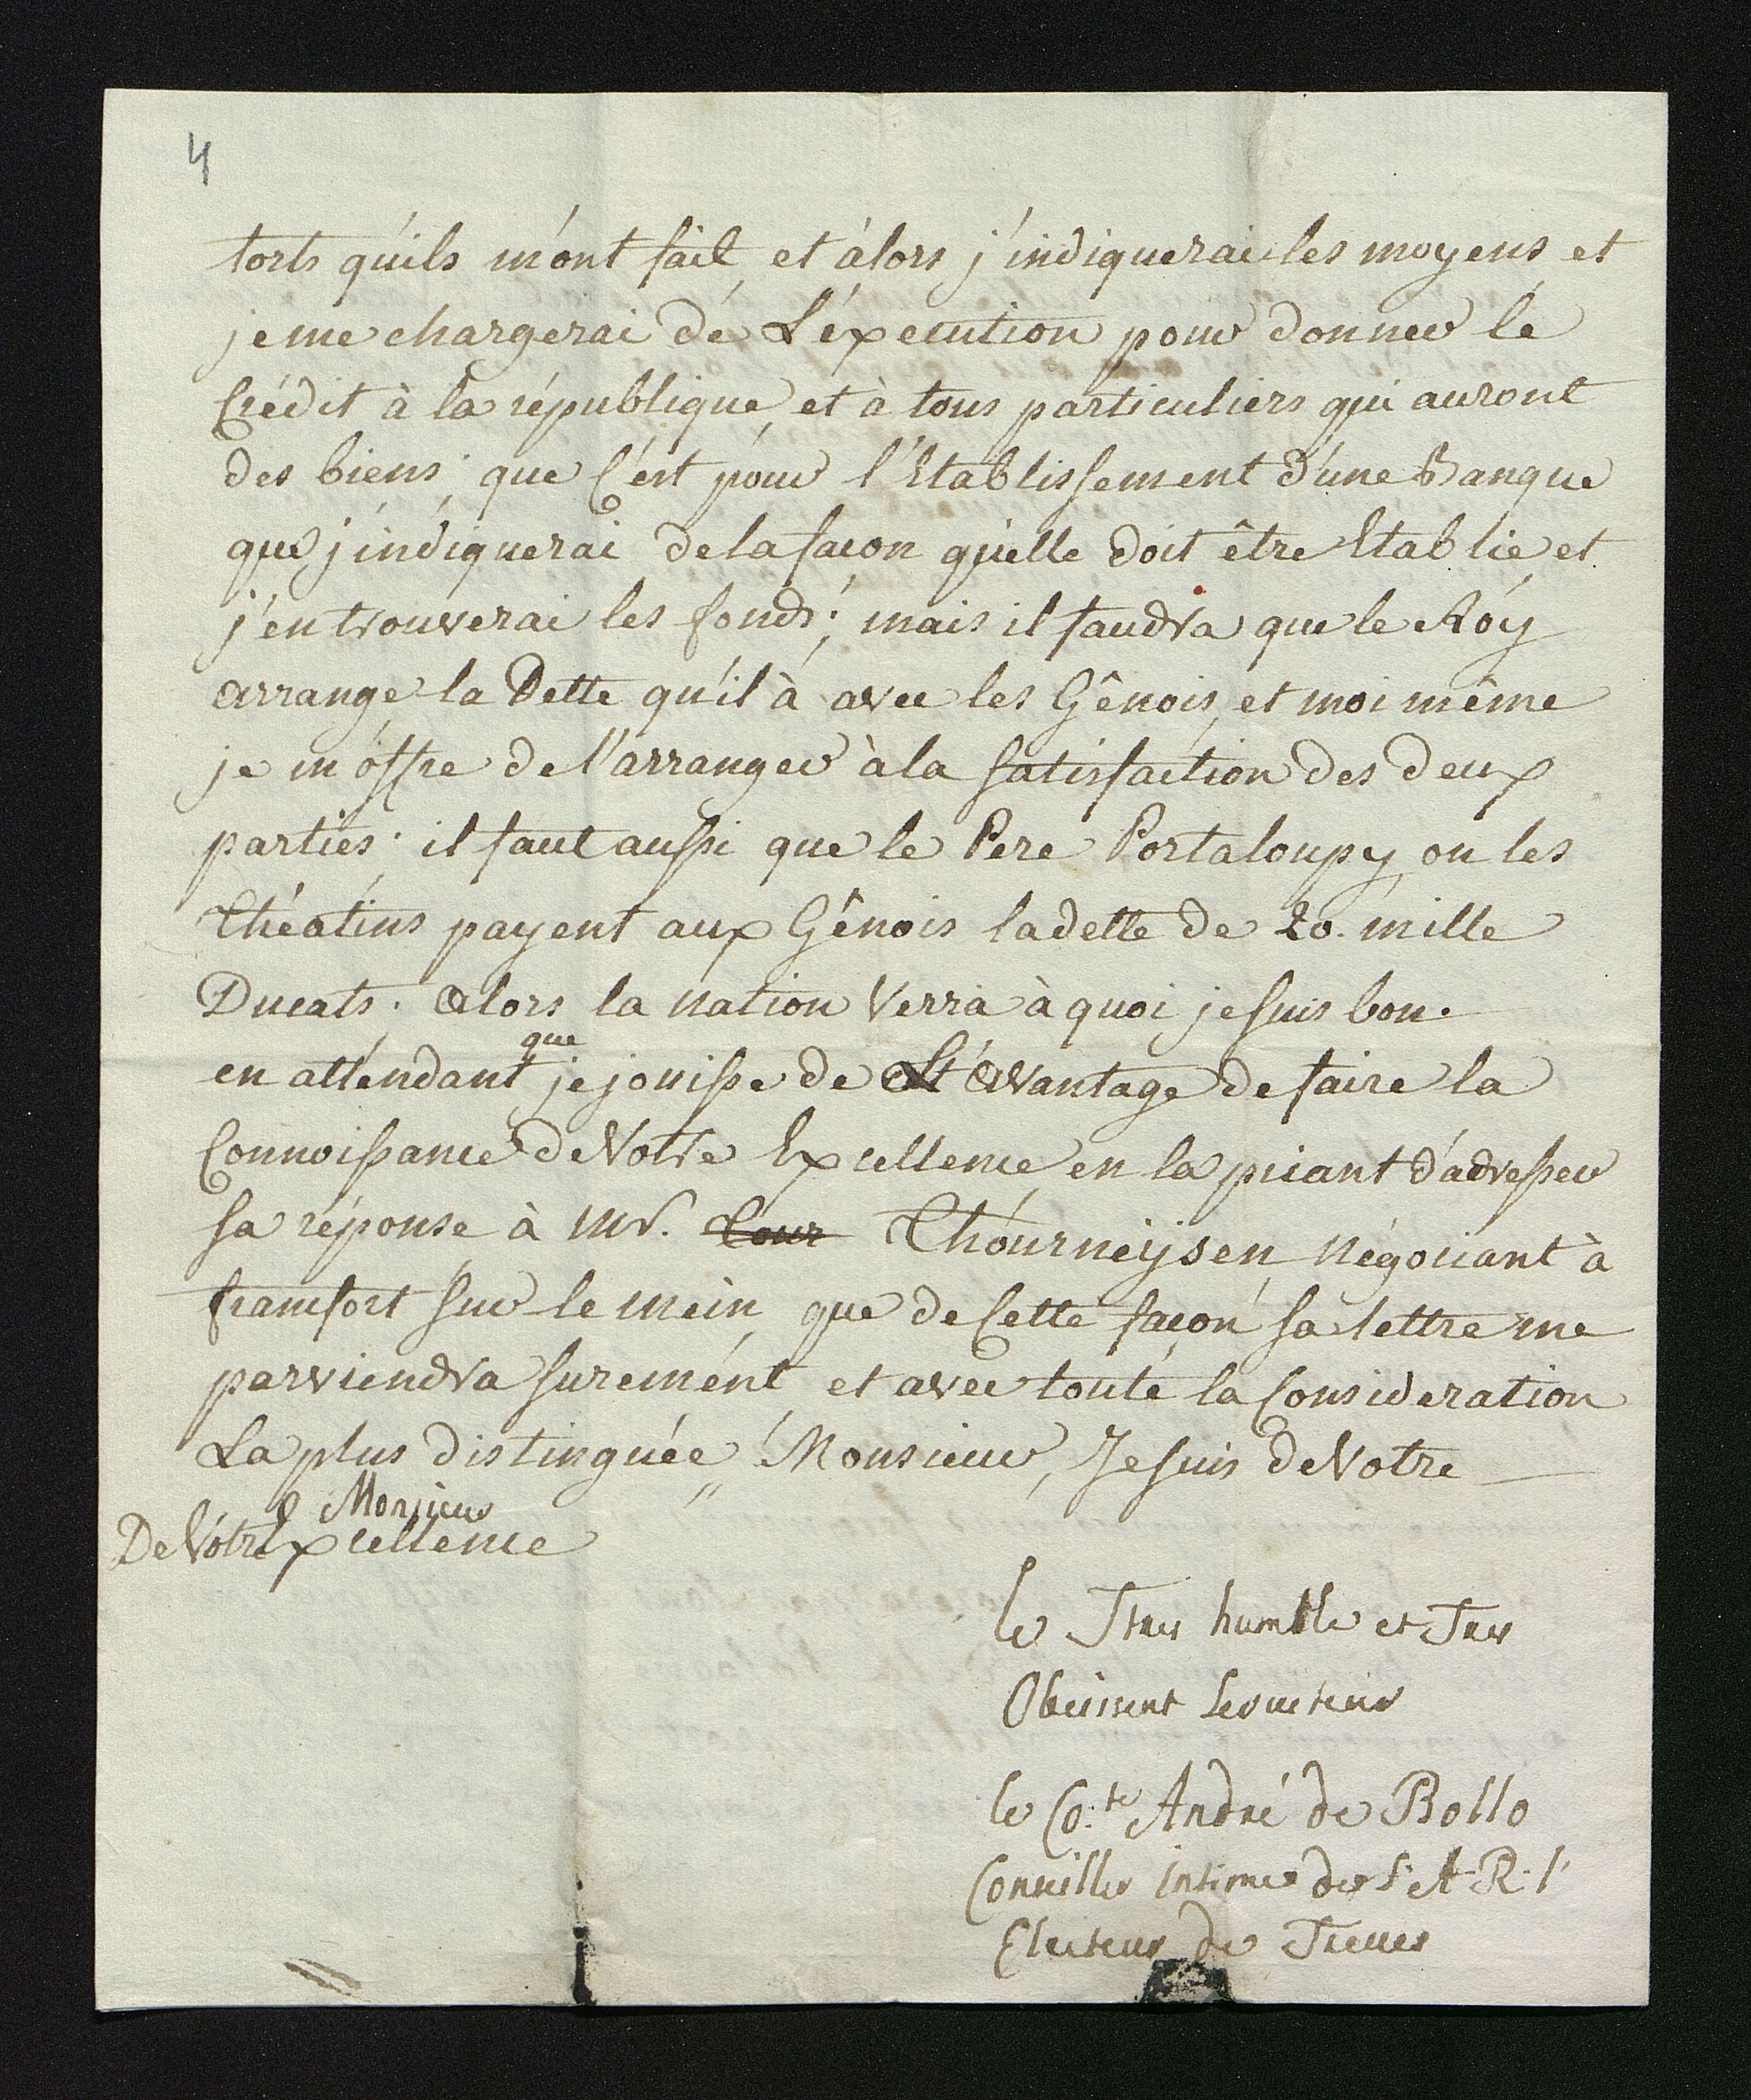 4
torts qu'ils m'ont fait, et àlors j'indiquerai les moyens et
je me chargerai dé L'éxecution pour donner le
Crédit à la république, et à tous particuliers qui auront
des biens; que C'est pour l'Etablissement d'une Banque
que j'indiquerai de la facon qu'elle doit être Etablie, et
j'en trouverai les fonds; mais il faudra que le Róy
arrange la Dette qu'il à avec les Gênois, et moi même
je m'óffre de l'arranger à la satisfaction des deux
parties; il faut aussi que le Pere Portaloupy ou les
Théatins payent aux Gênois la dette de 20. mille
Ducats; alors la nation Verra à quoi je suis bon.
que
en attendant je jouisse de L'avantage de faire la
Connoissance de Votre Excellence, en la priant d'adresser
sa réponse à Mr. Cour Thourneijsen négociant à
francfort sur le mein, que de Cette façon sa lettre me
parviendra surement, et avec toute la Consideration
La plus distinguée, Monsieur, Je suis de Votre
Monsieur
De Vótre Excellence
le Tres humble et Tres
Obeissent Serviteur
le Co:te André de Bollo
Conseiller intime de S. A. R. l'
Electeur de Treves